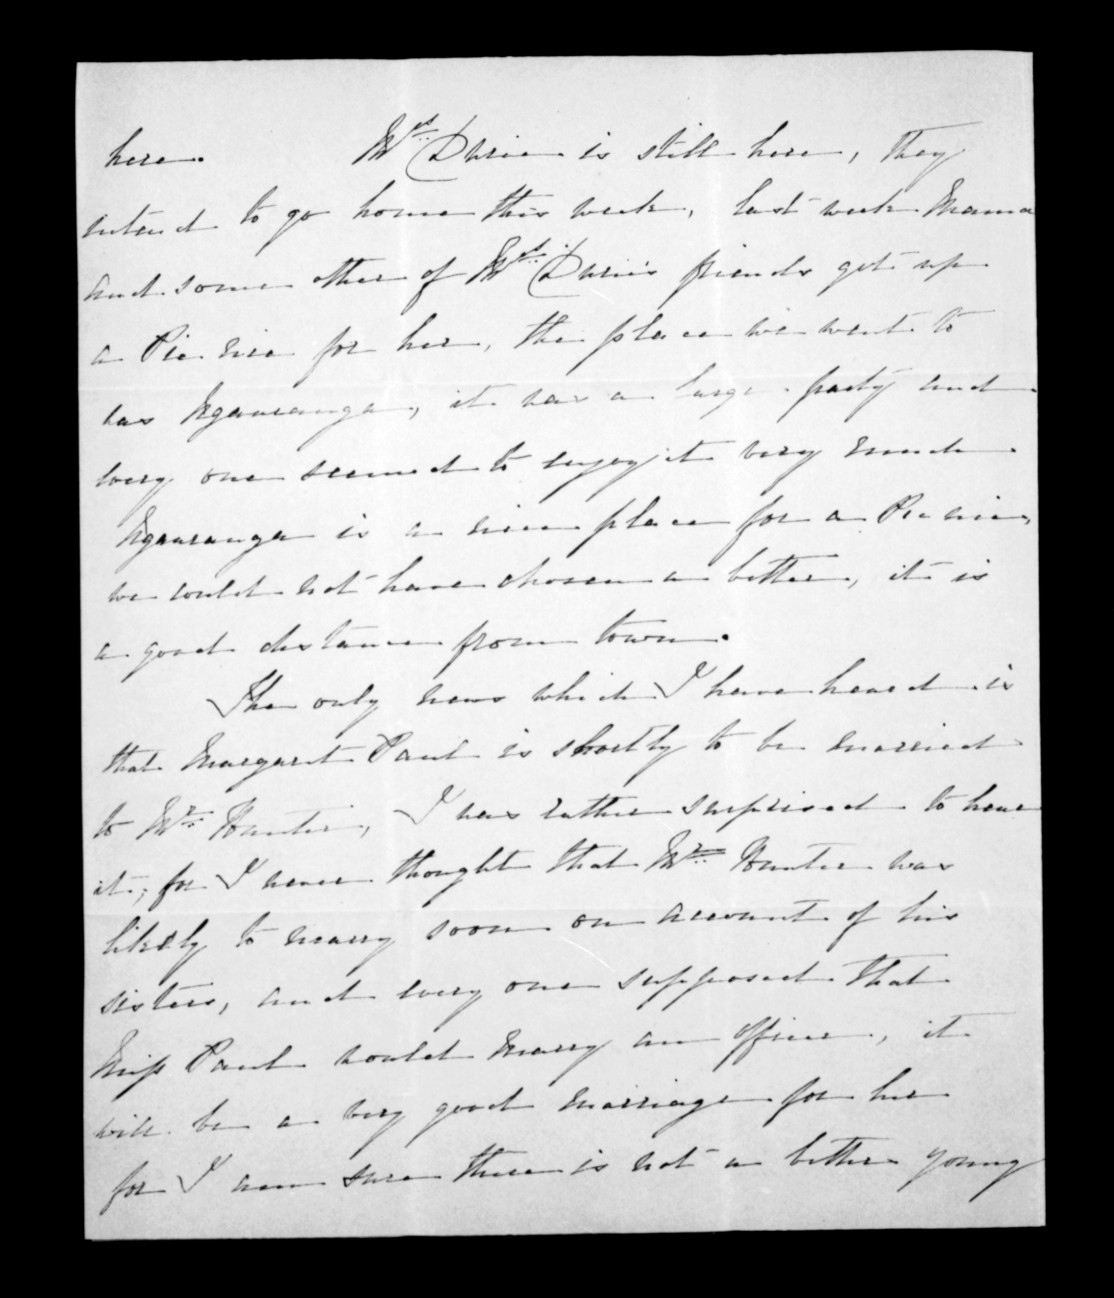 here. Mrs. Durie is still here, they
intend to go home this week, last week Mama
and some other of Mrs. Durie's friends got up
a Pic nic for her, the place we went to
was Ngauranga, it was a large party and
every one seemed to enjoy it very much.
Ngauranga is a nice place for a Pic nic,
we could not have chosen a better, it is
a good distance from town.
The only news which I have heard is
that Margaret Paul is shortly to be married
to Mr. Hunter, I was rather surprised to hear
it; for I never thought that Mr. Hunter was
likely to marry soon on account of his
sisters, and every one supposed that
Miss Paul would marry an officer, it
will be a very good marriage for her
for I am sure there is not a better young